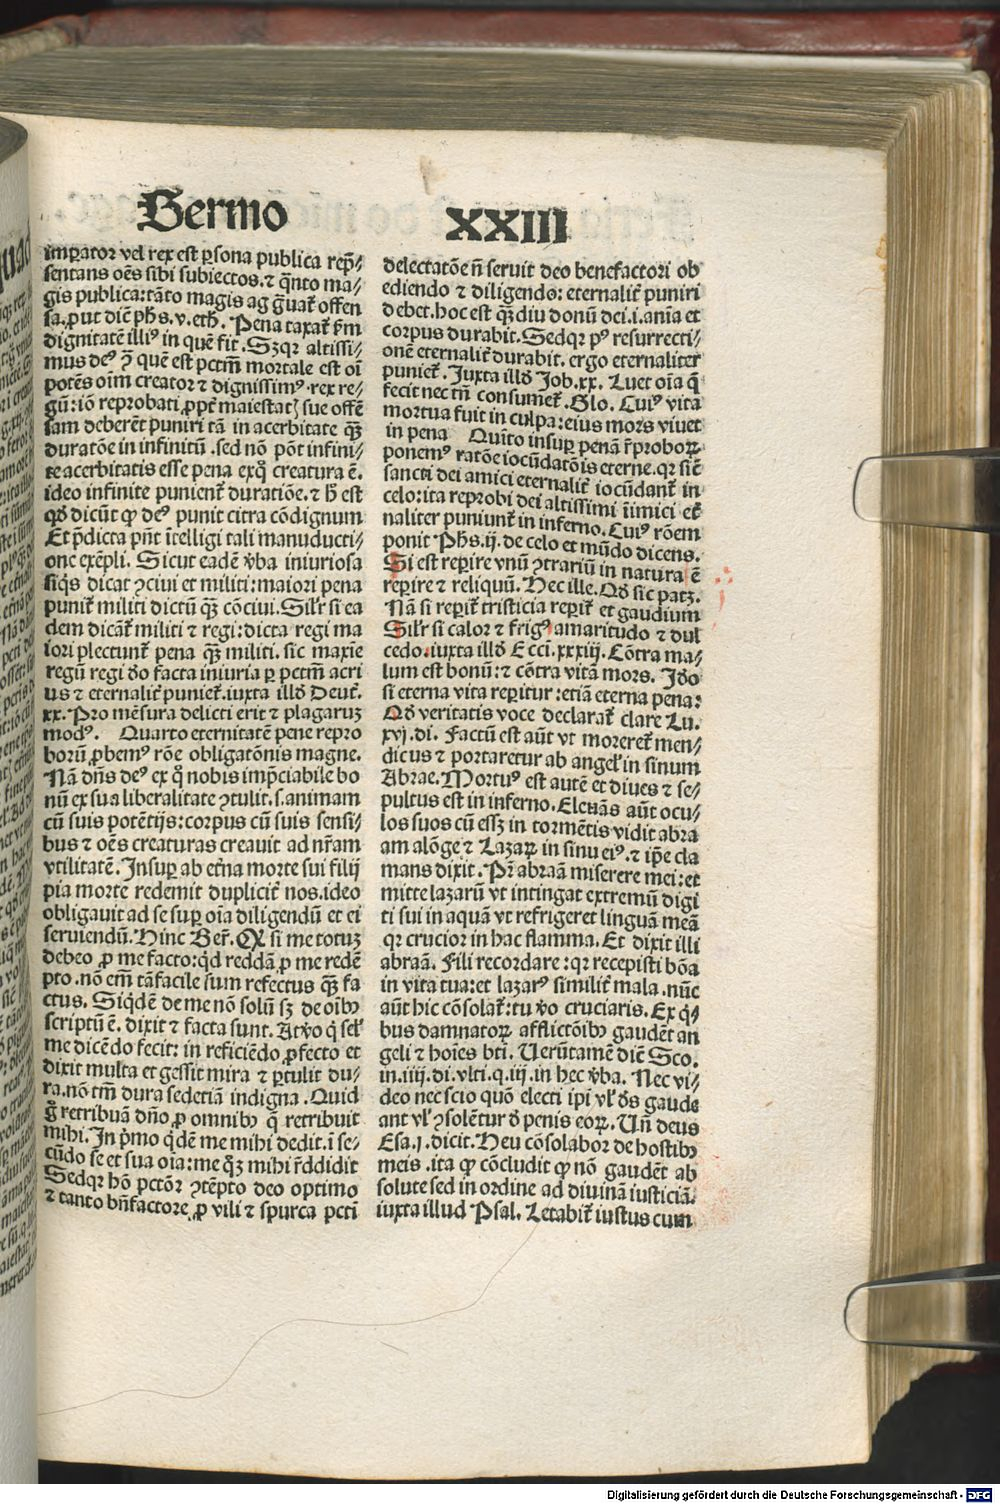 Sermo XXIII
imperator vel rex est ꝑsona publica repñ⸗
sentans oẽs sibi subiectos. ⁊ q̃nto ma⸗
gis publica: tãto magis ag g̃uat᷑ offen
sa. ꝓut dic̃ ph̃s .v. eth̃. Pena taxat᷑ ẜm
dignitatẽ illiꝰ in quẽ fit. Sꝫ qꝛ altissi⸗
mus deꝰ ꝯ̃ quẽ est pctm̃ mortale est oĩ
potẽs oĩm creator ⁊ dignissimꝰ rex re⸗
gũ: iõ reprobati ꝓpt᷑ maiestatꝭ sue offẽ
sam deberẽt puniri tã in acerbitate qꝫ̃
duratõe in infinitũ. sed nõ põt infini⸗
te acerbitatis esse pena exq̃ creatura ẽ.
ideo infinite punient᷑ duratiõe. ⁊ h̃ est
qđ dicũt ꝙ deꝰ punit citra cõdignum
Et p̃dicta pñt ĩtelligi tali manuducti⸗
one exẽpli. Sicut eadẽ v̾ba iniuriosa
siqͥs dicat ꝯciui et militi: maiori pena
punit᷑ militi dictũ qꝫ̃ cõciui. Sil̃r si ea
dem dicãt᷑ militi ⁊ regi: dicta regi ma
iori plectunt᷑ pena qꝫ̃ militi. sic maxĩe
regũ regi đo facta iniuria ꝑ pctm̃ acri
us ⁊ eternalit᷑ puniet᷑. iuxta illđ Deut̃.
xx. Pro mẽsura delicti erit ⁊ plagaruꝫ
modꝰ. Quarto eternitatẽ pene repro
borũ ꝓbemꝰ rõe obligatõnis magne.
Nã dñs deꝰ ex q̊ nobis imp̃ciabile bo
nũ ex sua liberalitate ꝯtulit. ſ. animam
cũ suis potẽtijs: corpus cũ suis sensi⸗
bus ⁊ oẽs creaturas creauit ad nr̃am
vtilitatẽ. Insuꝑ ab et̾na morte sui filij
pia morte redemit duplicit᷑ nos. ideo
obligauit ad se suꝑ oĩa diligendũ et ei
seruiendũ. Hinc Ber̃. Qꝛ si me totuꝫ
debeo ꝓ me facto: qͥd reddã ꝓ me redẽ
pto. nõ em̃ tã facile sum refectus qꝫ̃ fa
ctus. Siqͥdẽ de me nõ solũ sꝫ de oĩbꝫ
scriptũ ẽ. dixit ⁊ facta sunt. At v̾o q̇ sel᷑
me dicẽdo fecit: in reficiẽdo ꝓfecto et
dixit multa et gessit mira ⁊ ꝑtulit du⸗
ra. nõ tm̃ dura sed etiã indigna. Quid
g̊ retribuã dño ꝓ omnibꝫ q̃ retribuit
mihi. In p̾mo qͥdẽ me mihi dedit. ĩ se⸗
cũdo se et sua oĩa: me q̊ꝫ mihi r̃ddidit
Sed qꝛ hõ pctõꝛ ꝯtẽpto deo optimo
⁊ tanto bñfactore. ꝓ vili ⁊ spurca pcti
delectatõe ñ seruit deo benefactori ob
ediendo ⁊ diligendo: eternalit᷑ puniri
debet. hoc est qꝫ̃diu donũ dei .i. aĩa et
corpus durabit. Sed qꝛ pꝰ resurrecti⸗
onẽ eternalit᷑ durabit. ergo eternaliter
puniet᷑. Iuxta illđ Job. xx. Luet oĩa q̃
fecit nec tñ consumet᷑. Glo. Cuiꝰ vita
mortua fuit in culpa: eius mors viuet
in pena Quĩto insuꝑ penã r̃proboꝝ
ponemꝰ ratõe iocũdatõis eterne. qꝛ sic̃
sancti dei amici eternalit᷑ iocũdant᷑ in
celo: ita reprobi dei altissimi ĩimici et᷑
naliter puniunt᷑ in inferno. Cuiꝰ rõem
ponit Ph̃s. ij. de celo et mũdo dicens.
Si est reꝑire vnũ ꝯtrariũ in natura ẽ
reꝑire ⁊ reliquũ. Hec ille. Qđ sic patꝫ.
Nã si reꝑit᷑ tristicia reꝑit᷑ et gaudium
Sil̃r si calor ⁊ frigꝰ amaritudo ⁊ dul
cedo. iuxta illđ Ecci. xxxiii. Cõtra ma⸗
lum est bonũ: ⁊ cõtra vitã mors. Iđo
si eterna vita reꝑitur: etiã eterna pena:
Qđ veritatis voce declarat᷑ clare Lu.
xvj. di. Factũ est aũt vt moreret᷑ men⸗
dicus ⁊ portaretur ab angel᷑ in sinum
Abrae. Mortuꝰ est autẽ et diues ⁊ se⸗
pultus est in inferno. Eleuãs aũt ocu⸗
los suos cũ essꝫ in tormẽtis vidit abra
am alõge ⁊ Lazaꝝ in sinu eiꝰ. ⁊ ip̃e cla
mans dixit. Pr̃ abraã miserere mei: et
mitte lazarũ vt intingat extremũ digi
ti sui in aquã vt refrigeret linguã meã
qꝛ crucior in hac flamma. Et dixit illi
abraã. Fili recordare: qꝛ recepisti bõa
in vita tua: et lazarꝰ similit᷑ mala. nũc
aũt hic cõsolat᷑: tu v̾o cruciaris. Ex q̾⸗
bus damnatoꝝ afflictõibꝫ gaudẽt an
geli ⁊ hoĩes bt̃i. Uerũtamẽ dic̃ Sco.
in .iiij. di. vlti. q. iij. in hec v̾ba. Nec vi⸗
deo nec scio quõ electi ip̃i vl̾ đs gaude
ant vl̾ ꝯsolẽtur đ penis eoꝝ. Uñ deus
Esa. j. dicit. Heu cõsolabor de hostibꝫ
meis. ita ꝙ cõcludit ꝙ nõ gaudẽt ab
solute sed in ordine ad diuinã iusticiã.
iuxta illud Psal. Letabit᷑ iustus cum
Digitalisierung gefördert durch die Deutsche Forschungsgemeinschaft - DFG